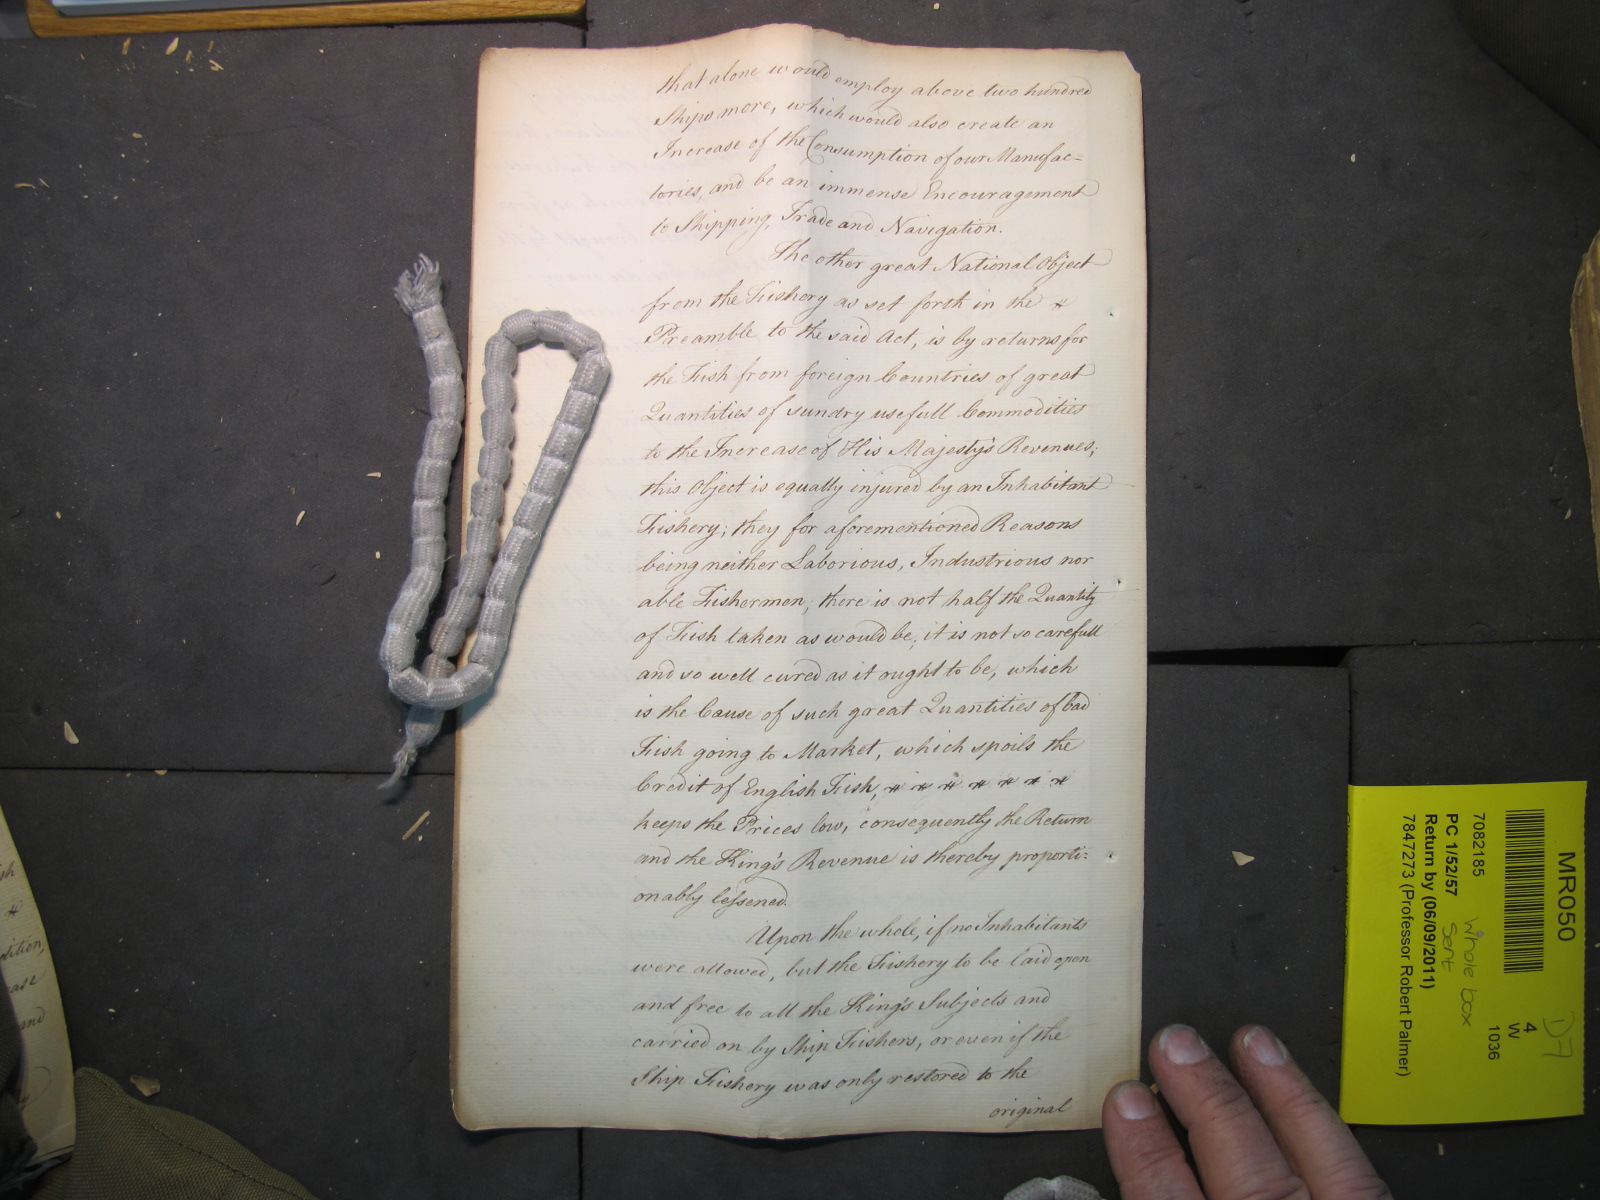 that alone would employ above two hundred
Ships more, which would also create an
Increase of the Consumption of our Manufac=
tories, and be an immense Encouragement
to Shipping, Trade and Navigation.
The other great National Object
from the Fishery as set forth in the
Preamble to the said Act, is by returns for
the Fish from foreign Countries of great
Quantities of sundry usefull Commodities
to the Increase of His Majesty's Revenues;
this Object is equally injured by an Inhabitant
Fishery; they for aforementioned Reasons
being neither Laborious, Industrious nor
able Fishermen, there is not half the Quantity
of Fish taken as would be; it is not so carefull
and so well cured as it ought to be, which
is the Cause of such great Quantities of bad
Fish going to Market, which spoils the
Credit of English Fish,
keeps the Prices low, consequently the Return
and the King's Revenue is thereby proporti=
onably lessened.
Upon the whole, if no Inhabitants
were allowed, but the Fishery to be laid open
and free to all the King's Subjects and
carried on by Ship Fishers, or even if the
Ship Fishery was only restored to the
original
MR050
7082185
PC 1/52/57
Return by (06/09/2011)
7847273 (Professor Robert Palmer)
Whole box
sent
D7
4
W
1036
dition,
ease
and